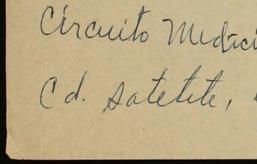 Circuito Medici
Cd. Satetite,